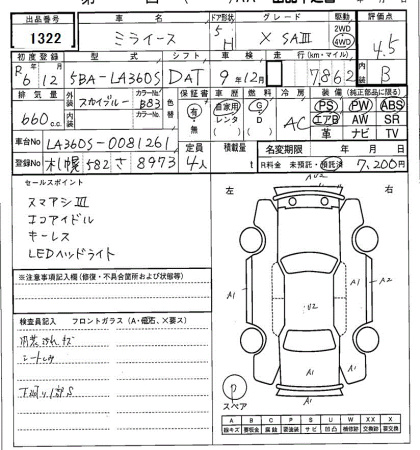 出品番号 車名 ドア形状 グレード 駆動 評価点
1322 ミライース 5 H X SAⅢ 2WD 4WD 4.5
初度登録 型式 シフト 車検 走行 (km・マイル) 内装
R6 12 5BA-LA360S DAT 9年12月 7,862 B
排気量 外装 カラーNo. 色替 保証書 車歴 燃料 冷房 装備 (純正部品に限る)
660cc スカイブルー B83 有・無 自家用 レンタ G D AC PS PW ABS
内装 カラーNo. エアB AW SR
革 ナビ TV
車台No LA360S-0081261 定員 積載量 名変期限 年 月 日
登録No 札幌 582 さ 8973 4人 t R料金 未預託・預託済 7,200円
セールスポイント
スマアシⅢ
エコアイドル
キーレス
LEDヘッドライト
※注意事項記入欄 (修復・不具合箇所および状態等)
検査員記入 フロントガラス (A・飛石、×要ス)
シートしみ
左 右
A1
A1
A2
U2
A1
A1
スペア
A B C P S U W X XX
線キズ 要板金 腐蝕 要塗装 サビ 凹凸 補修跡 要交換 交換跡